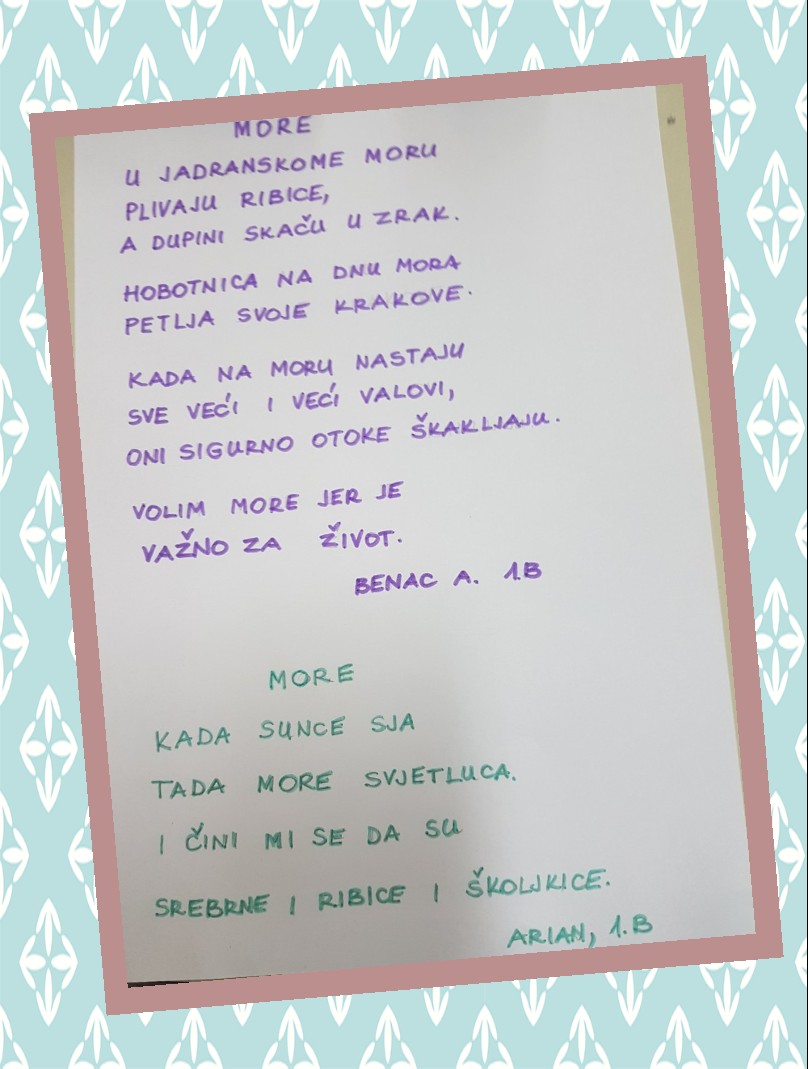 MORE
U JADRANSKOME MORU
PLIVAJU RIBICE,
A DUPINI SKAČU U ZRAK.
HOBOTNICA NA DNU MORA
PETLJA SVOJE KRAKOVE.
KADA NA MORU NASTAJU
SVE VEĆI I VEĆI VALOVI,
ONI SIGURNO OTOKE ŠKAKLJAJU.
VOLIM MORE JER JE
VAŽNO ZA ŽIVOT.
BENAC A. 1.B
MORE
KADA SUNCE SJA
TADA MORE SVJETLUCA.
I ČINI MI SE DA SU
SREBRNE I RIBICE I ŠKOLJKICE.
ARIAN, 1.B